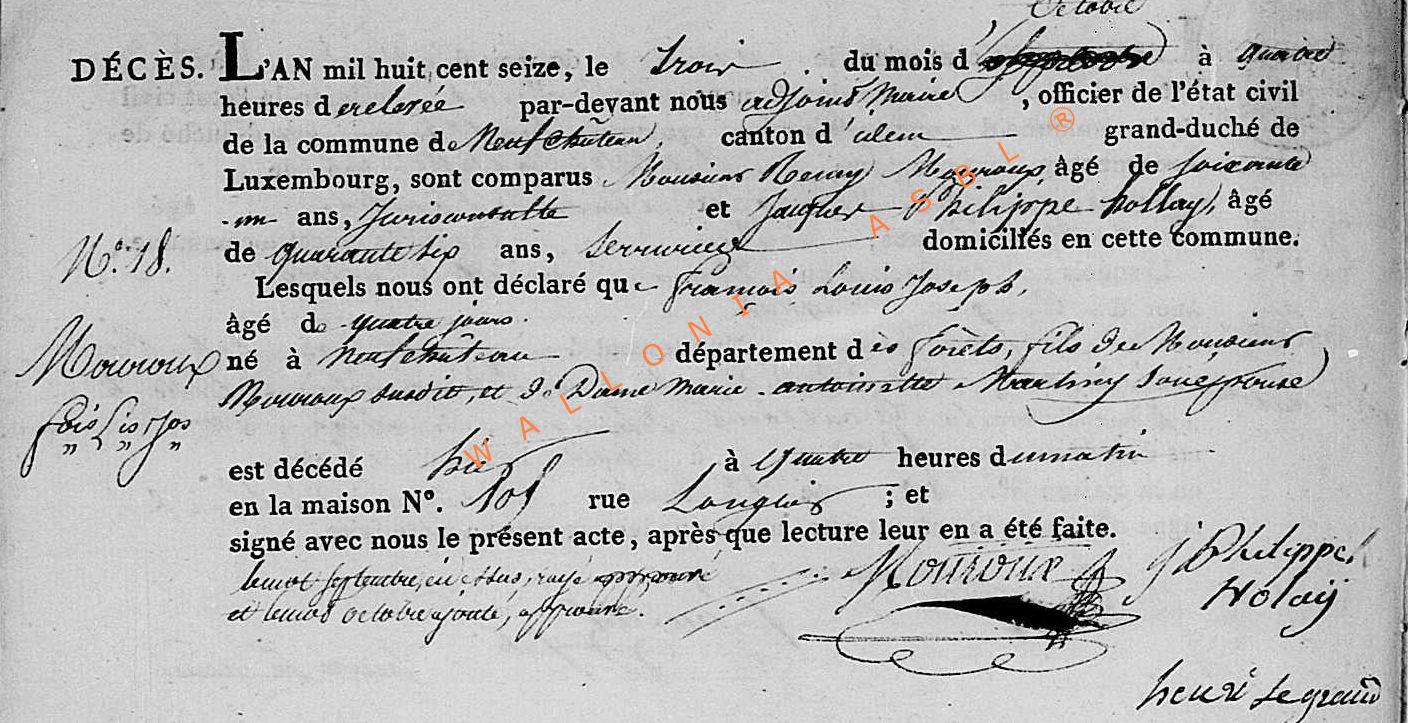 Octobre
DÉCÈS. L'AN mil huit cent seize, le trois du mois d' septembre à quatre
heures de relevée par-devant nous adjoint maire, officier de l'état civil
de la commune de Neufchateau, canton d'idem grand-duché de
Luxembourg, sont comparus Monsieur Henry Mouroux, âgé de soixante
un ans, Jurisconsulte et Jacques Philippe hollay, âgé
No. 18. de quarante six ans, serrurier domiciliés en cette commune.
Lesquels nous ont déclaré que françois Louis Joseph,
âgé de quatre jours.
Mouroux né à Neufchateau département des forêts, fils de Monsieur
Mouroux susdit, et de Dame Marie antoinette Martiny son epouse
fois Lis Jos
est décédé hier à quatre heures du matin
en la maison No. 101 rue Longue ; et
signé avec nous le présent acte, après que lecture leur en a été faite.
le mot septembre, ci dessus, rayé approuvé
et le mot octobre ajouté, approuvé.
Mouroux
J Philippe
Holaÿ
henri Legrand
WALLONIA ASBL ®